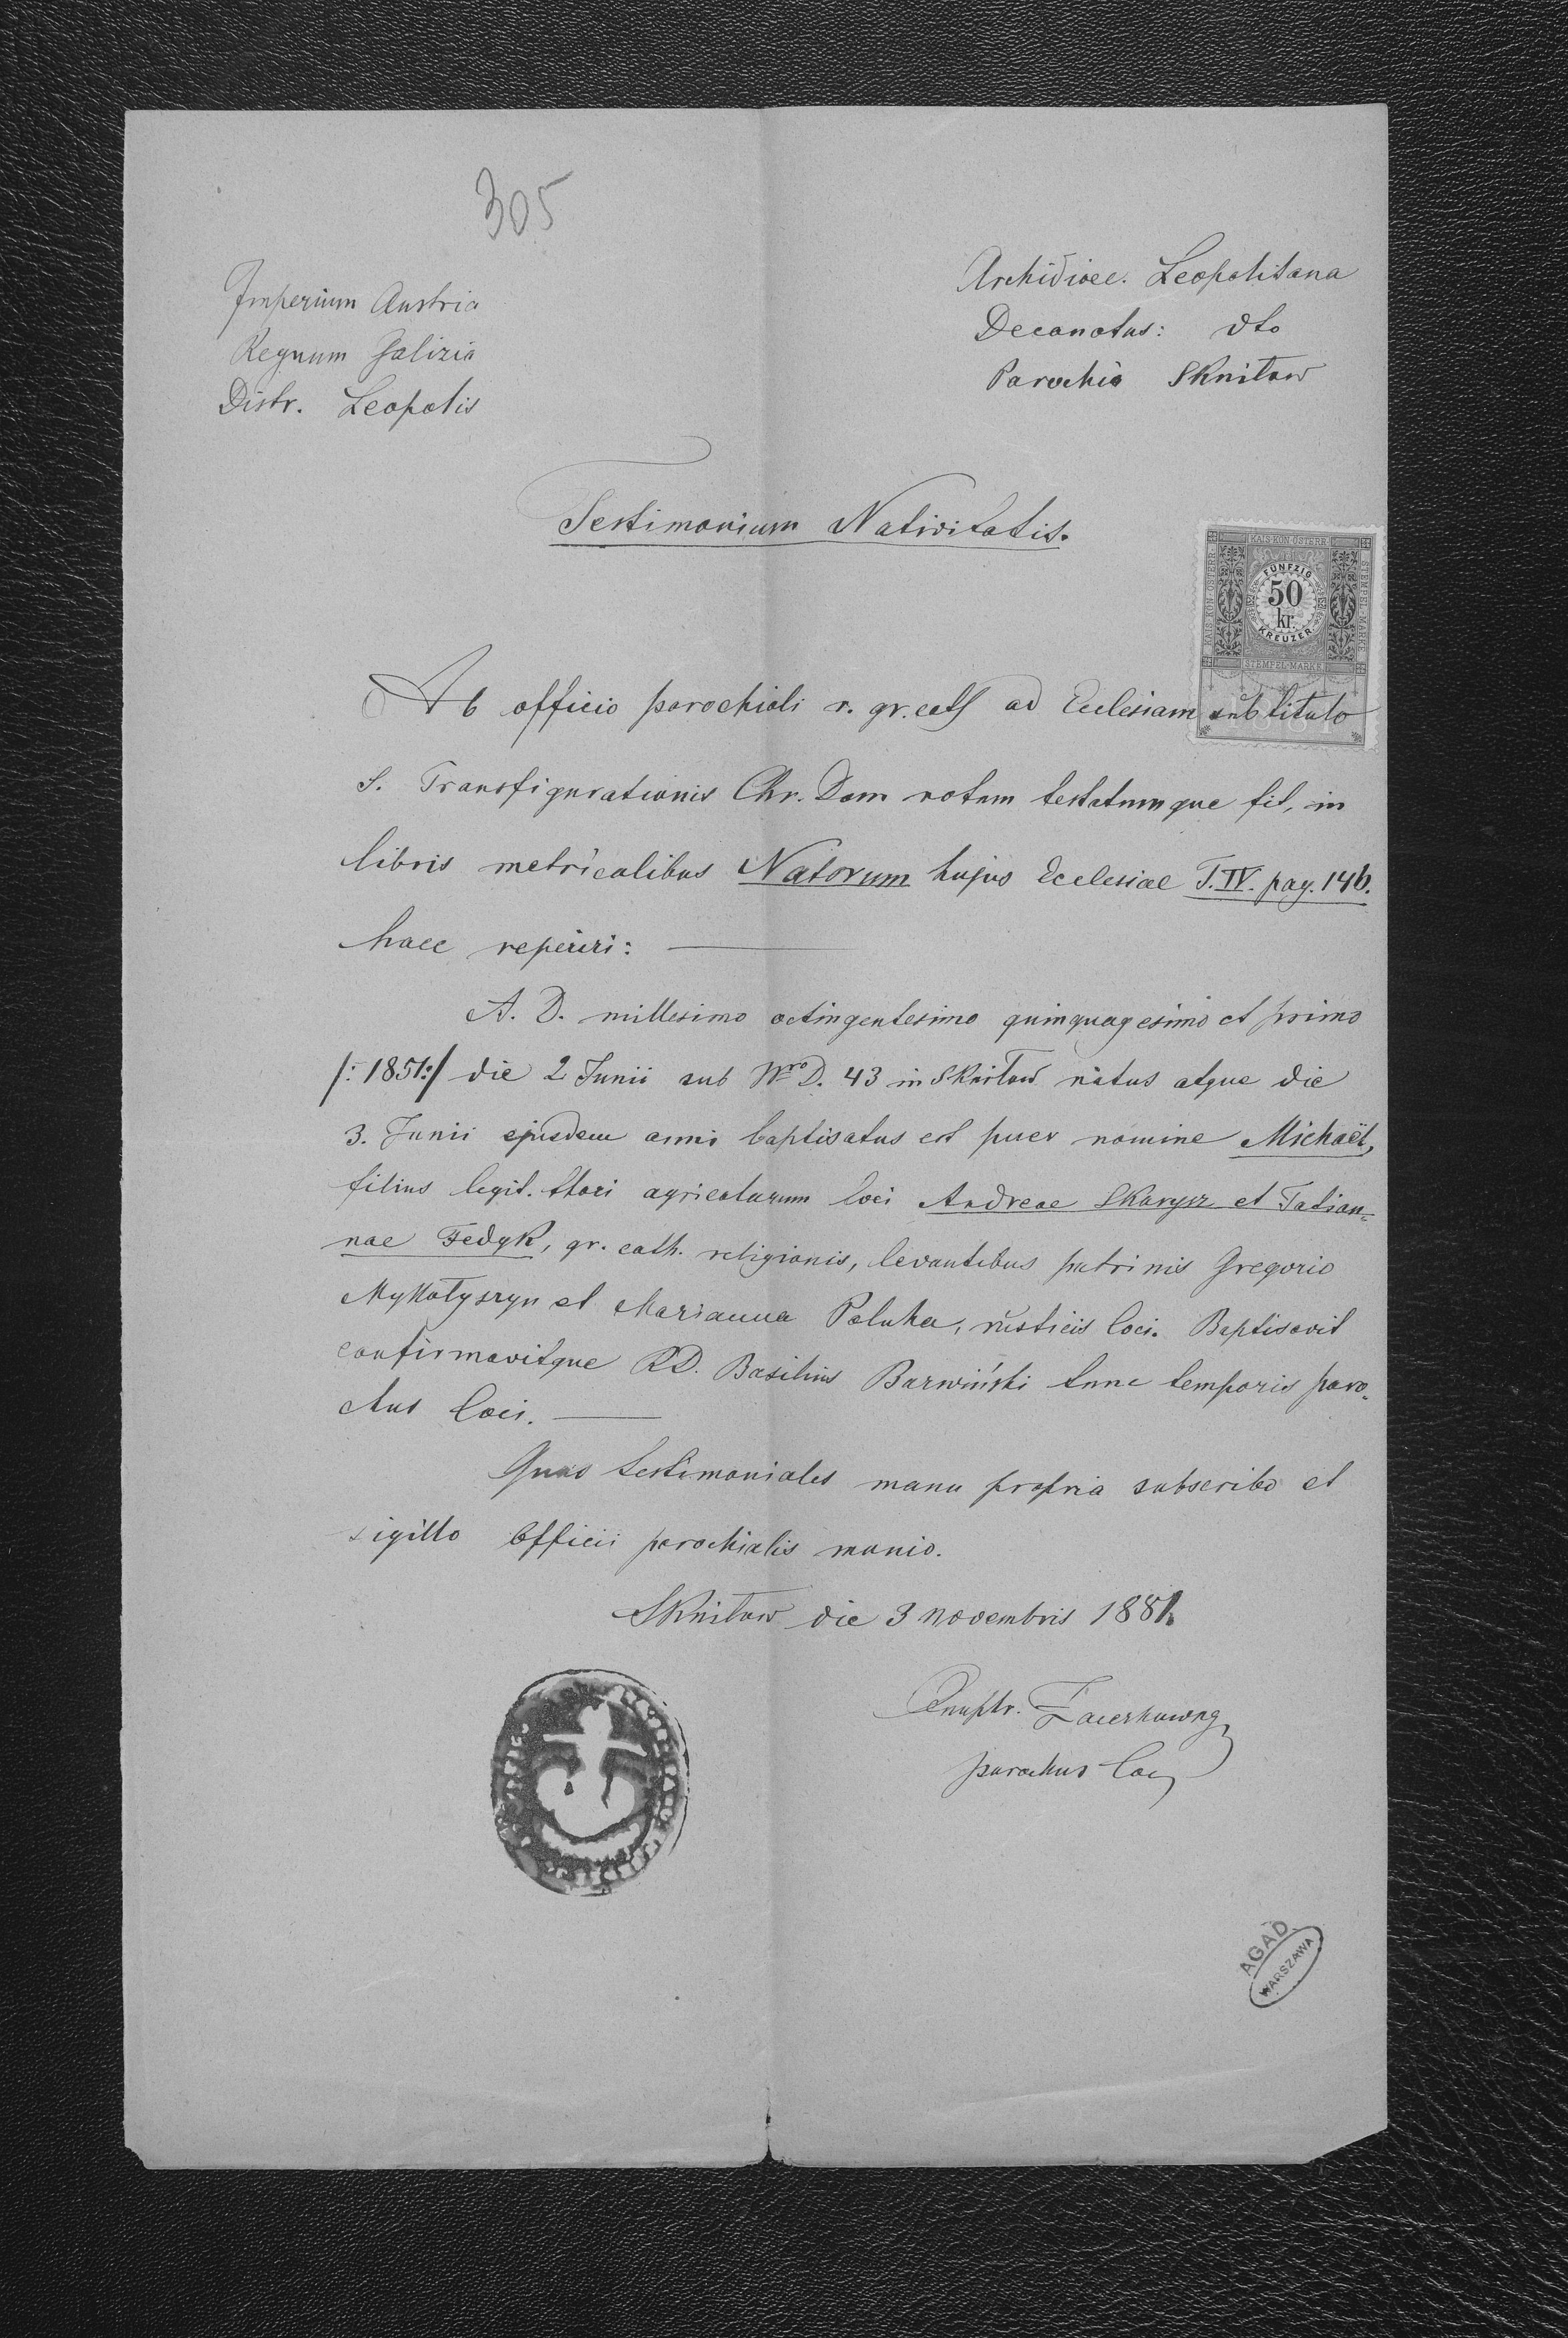 305
Imperium Austria
Regnum Galizia
Distr. Leopolis
Archidioec. Leopolitana
Decanatus: dto
Parochia Skniłow
Testimonium Nativitatis.
KAIS. KÖN. ÖSTERR.
STEMPEL-MARKE
FÜNFZIG
50
kr.
KREUZER
STEMPEL-MARKE
Ab officio parochiali r. gr. cath ad Ecclesiam sub titulo
S. Transfigurationis Chr. Dom notum testatumque fit, in
libris metricalibus Natorum hujus Ecclesiae T. IV. pag. 146.
haec reperiri:
A. D. millesimo octingentesimo quinquagesimo et primo
/: 1851:/ die 2 Junii sub Nro D. 43 in Skniłow natus atque die
3. Junii ejusdem anni baptisatus est puer nomine Michaël,
filius legit. thori agricolarum loci Andreae Skarysz et Tatian=
nae Fedyk, gr. cath. religionis, levantibus patrinis Gregorio
Mykkołyszyn et Marianna Paluha, rusticis loci. Baptisavit
confirmavitque RD. Basilius Barwiński tunc temporis paro=
chus loci.
Quas testimoniales manu propria subscribo et
sigillo Officii parochialis munio.
Skniłow die 3 Novembris 1881.
parochus loci
AGAD
WARSZAWA